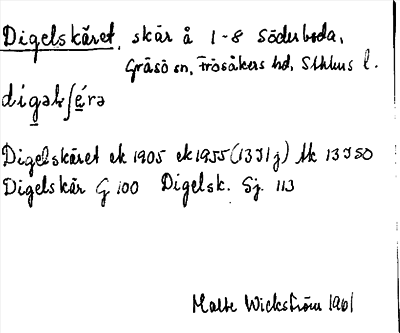 Digelskäret, skär å 1-8 Söderboda,
Gräsö sn, Frösåkers hd, Sthlms l.
dígəlsʃé̱rə
Digelskäret ek 1905 ek 1955 (13I1j) tk 13I50
Digelskär G 100 Digelsk. Sj. 113
Malte Wickström 1961